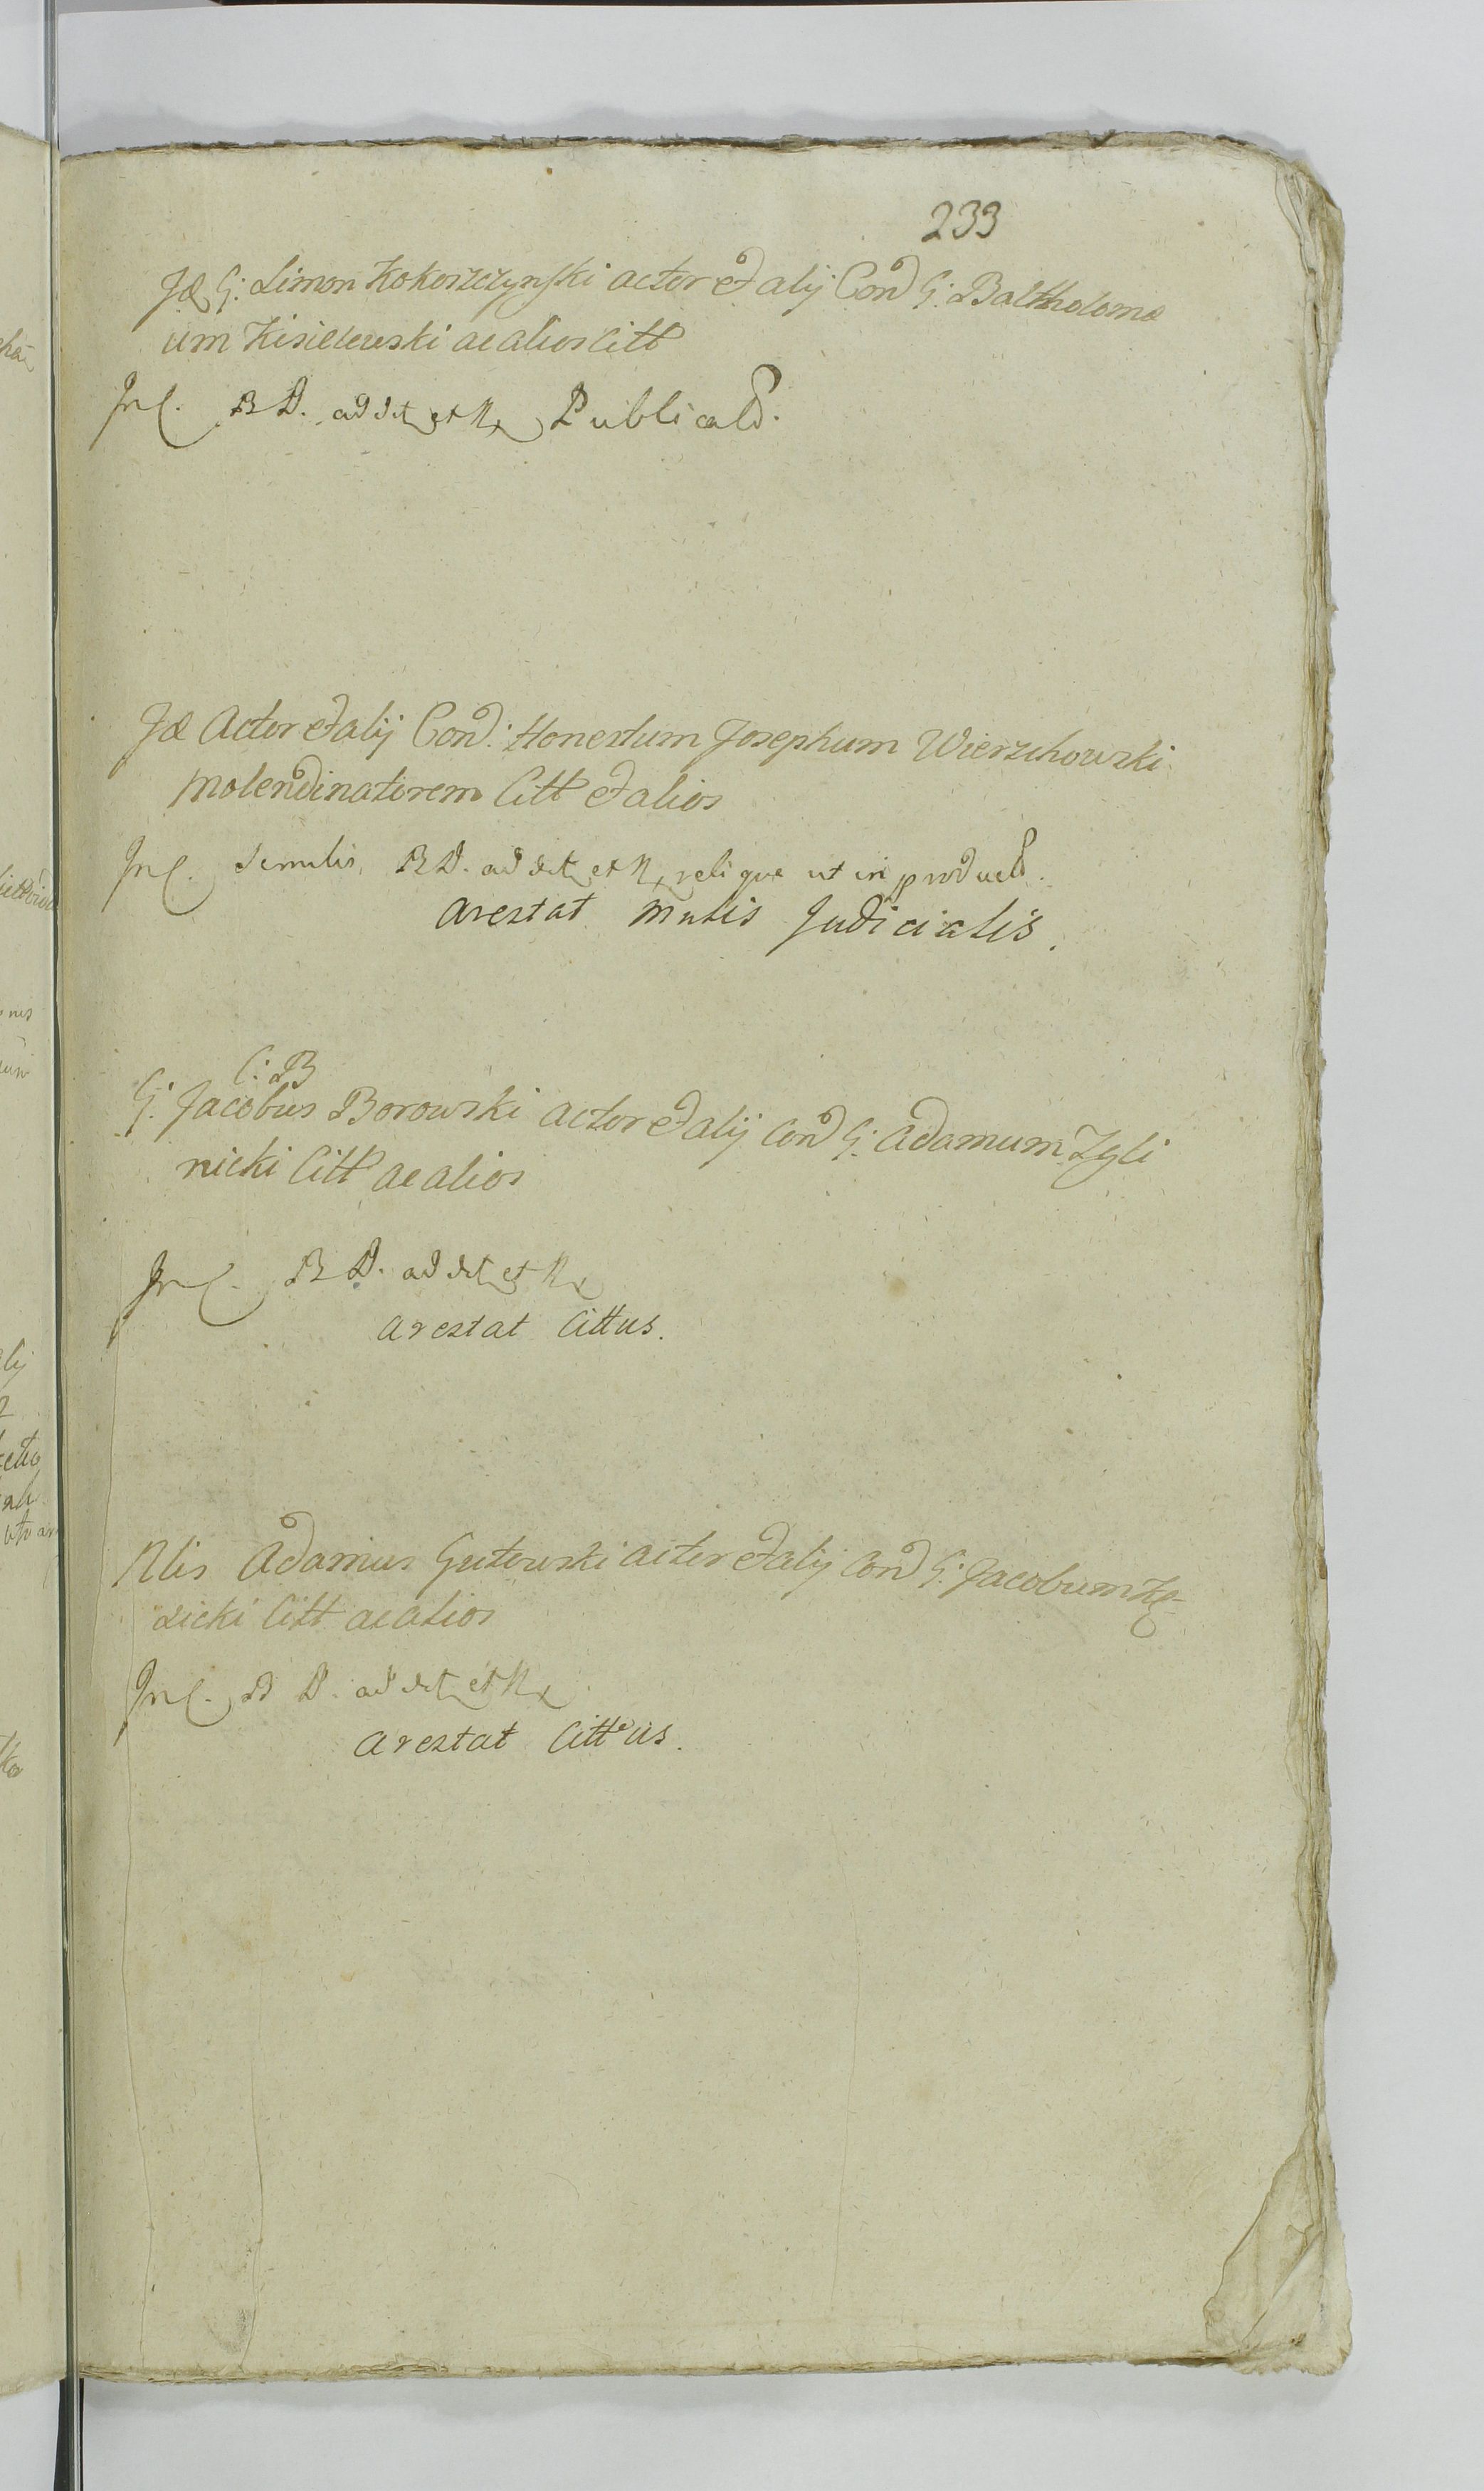 233
Id G: Simon Kokoszczynski actor et alij Con G: Balthholomæ
um Kisielewski ac alios Citt
In C. B D. ad dit et R Publicat.
Id Actor et alij Con: Honestum Josephum Wierzchowski
Molendinatorem Citt et alios
In C. Similis B D. ad dit et R relique ut in produc.
arestat Mutis Judicialis.
C: B
G: Jacobus Borowski actor et alij con G: Adamum Zyli
nicki Citt ac alios
In C. B D. ad dit et R
arestat Cittus.
Nlis Adamus Gutowski actor et alij con G: Jacobum
sicki Citt ac alios
In C. B D. ad dit et R
arestat Citt us.